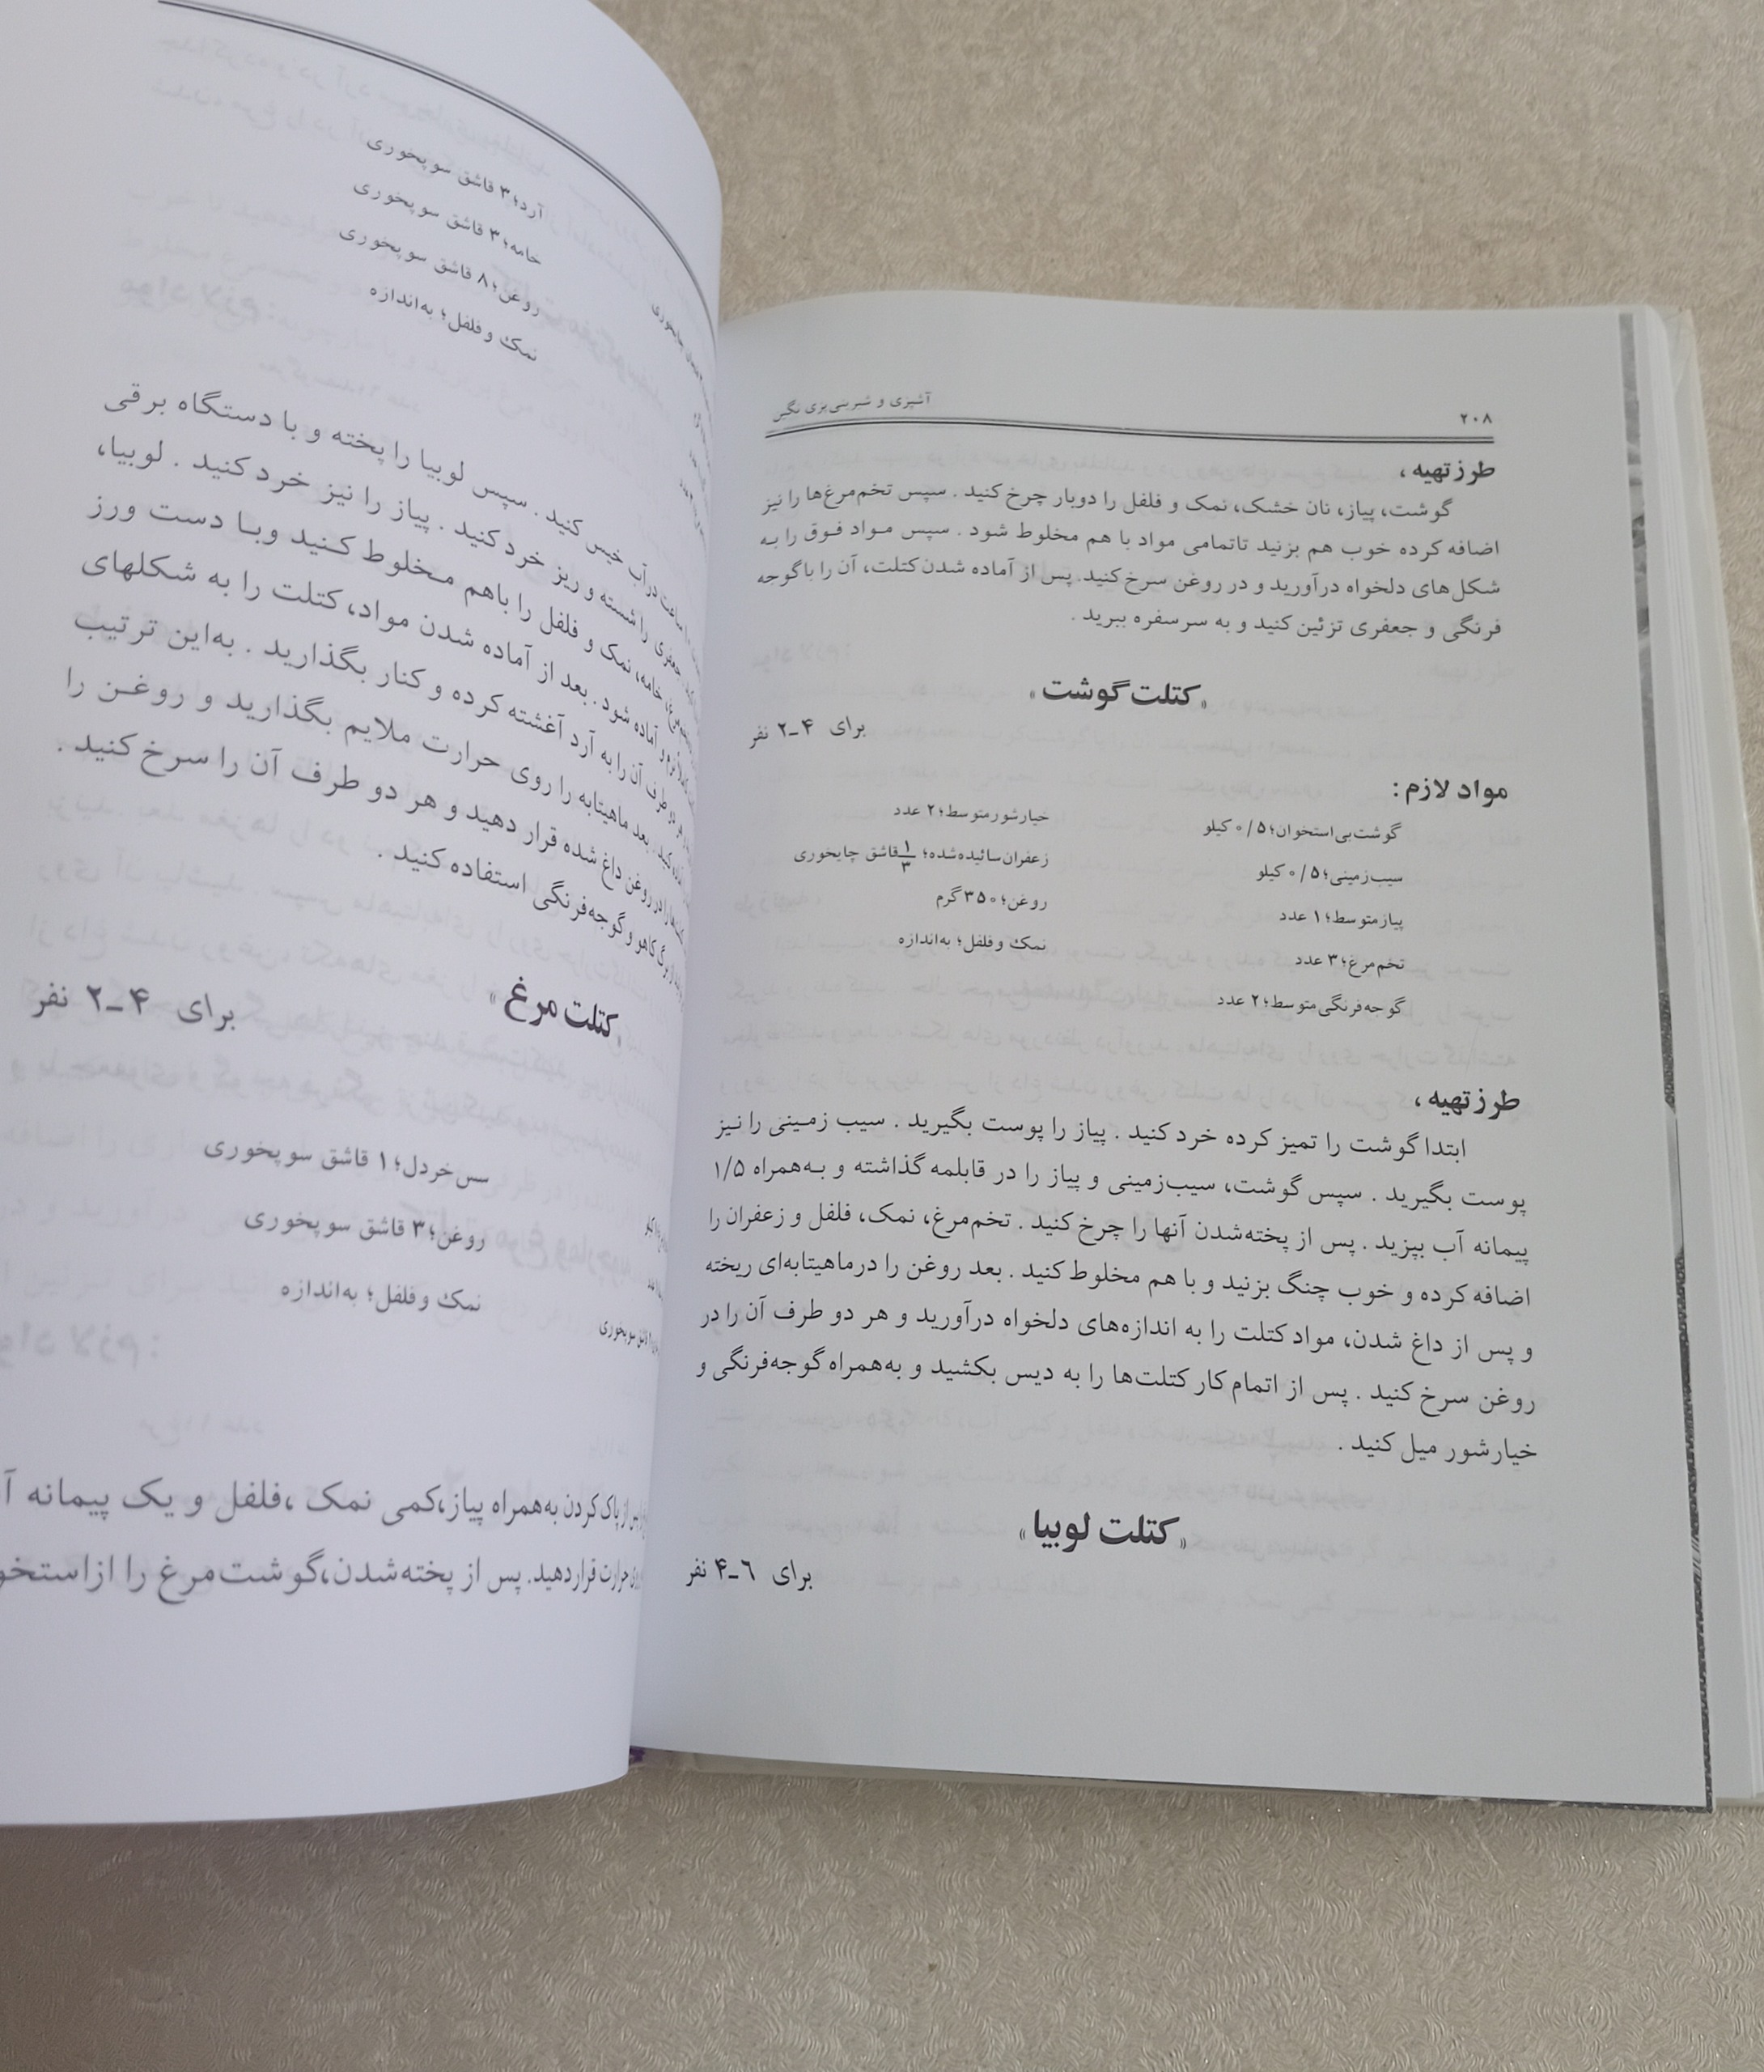 ۲۰۸
آشپزی و شیرینی‌پزی نگین
طرز تهیه ،
گوشت، پیاز، نان خشک، نمک و فلفل را دوبار چرخ کنید . سپس تخم‌مرغ‌ها را نیز
اضافه کرده خوب هم بزنید تاتمامی مواد با هم مخلوط شود . سپس مـواد فـوق را بـه
شکل‌های دلخواه درآورید و در روغن سرخ کنید. پس از آماده شدن کتلت، آن را با گوجه
فرنگی و جعفری تزئین کنید و به سر سفره ببرید .
«کتلت گوشت»
برای ۴ـ۲ نفر
مواد لازم :
گوشت‌بی‌استخوان؛ ۰/۵ کیلو
سیب‌زمینی؛ ۰/۵ کیلو
پیاز متوسط؛ ۱ عدد
تخم‌مرغ؛ ۳ عدد
گوجه‌فرنگی متوسط؛ ۲ عدد
خیارشور متوسط؛ ۲ عدد
زعفران‌سائیده‌شده؛ ۱/۳ قاشق چایخوری
روغن؛ ۳۵۰ گرم
نمک و فلفل؛ به‌اندازه
طرز تهیه ،
ابتدا گوشت را تمیز کرده خرد کنید . پیاز را پوست بگیرید . سیب زمـینی را نـیز
پوست بگیرید . سپس گوشت، سیب‌زمینی و پیاز را در قابلمه گذاشته و بـه‌همراه ۱/۵
پیمانه آب بپزید . پس از پخته‌شدن آنها را چرخ کنید . تخم‌مرغ، نمک، فلفل و زعفران را
اضافه کرده و خوب چنگ بزنید و با هم مخلوط کنید . بعد روغن را درماهیتابه‌ای ریخته
و پس از داغ شدن، مواد کتلت را به اندازه‌های دلخواه درآورید و هر دو طرف آن را در
روغن سرخ کنید . پس از اتمام کار کتلت‌ها را به دیس بکشید و به‌همراه گوجه‌فرنگی و
خیارشور میل کنید .
«کتلت لوبیا»
برای ۶ـ۴ نفر
آرد؛ ۳ قاشق سوپخوری
خامه؛ ۳ قاشق سوپخوری
روغن؛ ۸ قاشق سوپخوری
نمک و فلفل؛ به‌اندازه
ساعت در آب خیس کنید . سپس لوبیا را پخته و با دستگاه برقی
جعفری را شسته و ریز خرد کنید . پیاز را نیز خرد کنید . لوبیا،
خامه، نمک و فلفل را باهم مـخلوط کـنید وبـا دست ورز
و آماده شود . بعد از آماده شدن مواد، کتلت را به شکلهای
دو طرف آن را به آرد آغشته کرده و کنار بگذارید . به‌این ترتیب
کنید . بعد ماهیتابه را روی حرارت ملایم بگذارید و روغـن را
را در روغن داغ شده قرار دهید و هر دو طرف آن را سرخ کنید .
از برگ کاهو و گوجه‌فرنگی استفاده کنید .
«کتلت مرغ»
برای ۴ـ۲ نفر
سس‌خردل؛ ۱ قاشق سوپخوری
روغن؛ ۳ قاشق سوپخوری
نمک و فلفل؛ به‌اندازه
پس از پاک کردن به‌همراه پیاز،کمی نمک ،فلفل و یک پیمانه
حرارت قراردهید. پس از پخته‌شدن،گوشت‌مرغ را از